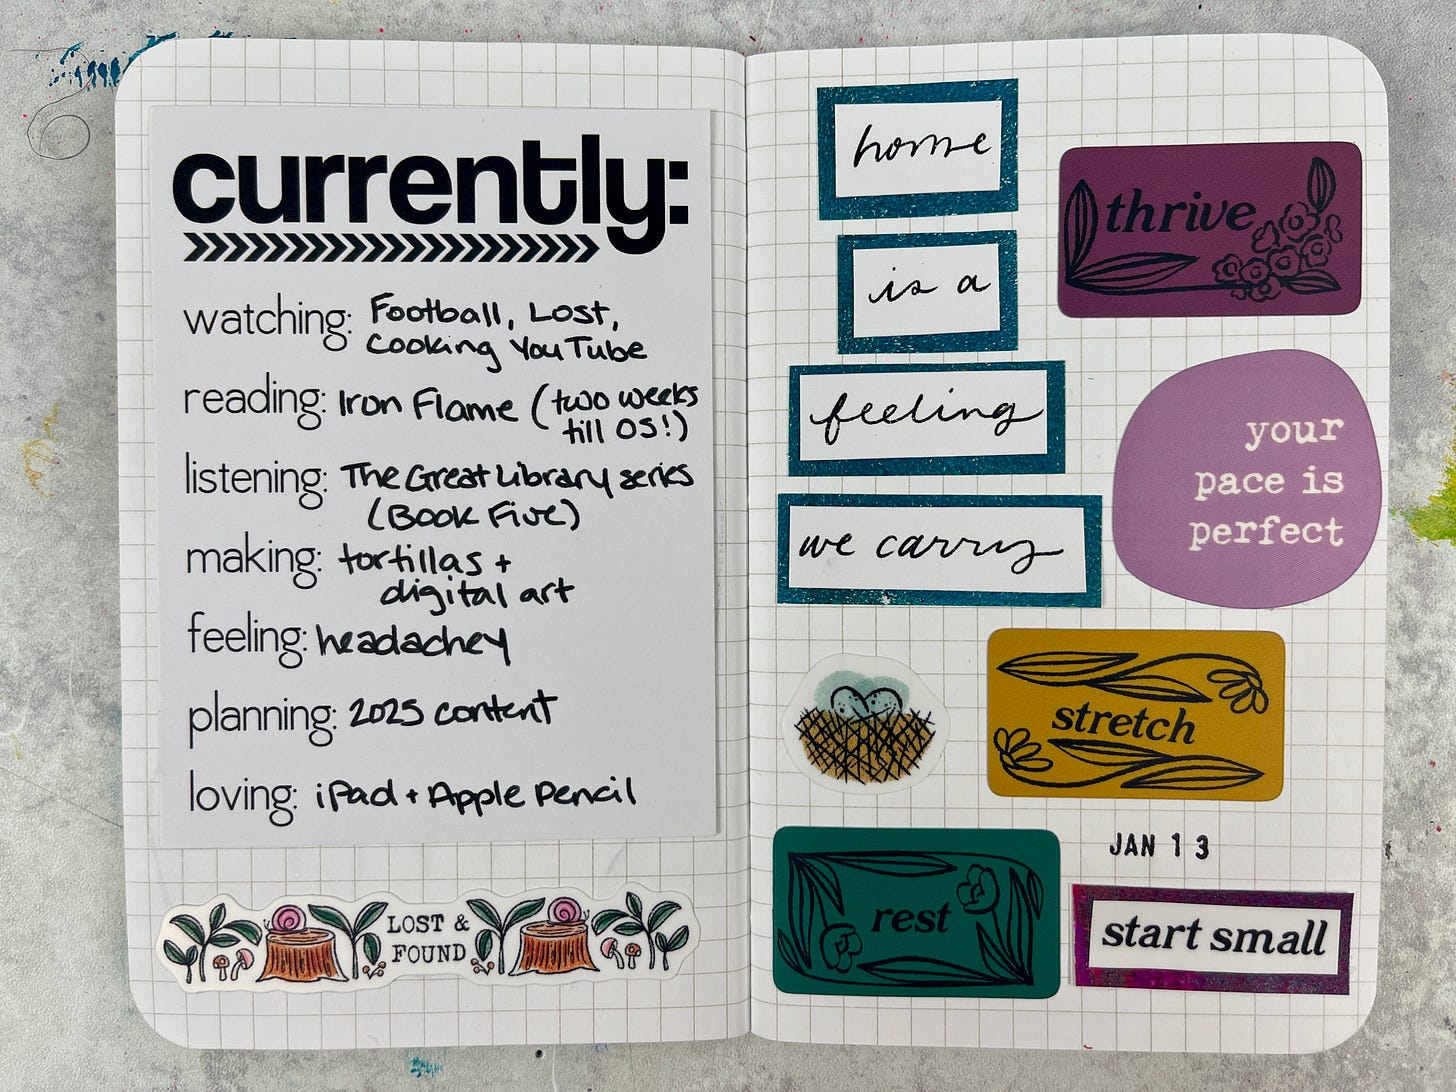 currently:
watching: Football, Lost,
Cooking YouTube
reading: Iron Flame (two weeks
till OS!)
listening: The Great Library series
(Book Five)
making: tortillas +
digital art
feeling: headachey
planning: 2025 content
loving: iPad + Apple Pencil
LOST &
FOUND
home
is a
feeling
we carry
thrive
your
pace is
perfect
stretch
rest
JAN 13
start small